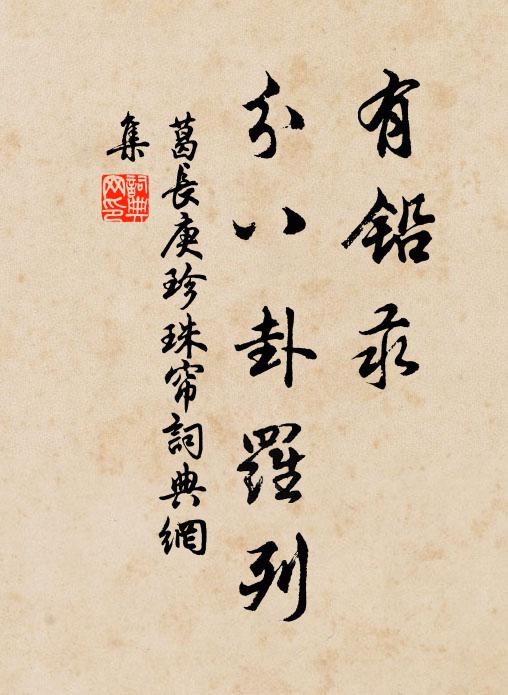 有鉛汞
分八卦羅列
葛長庚珍珠帘詞典網
集
詞典
网印